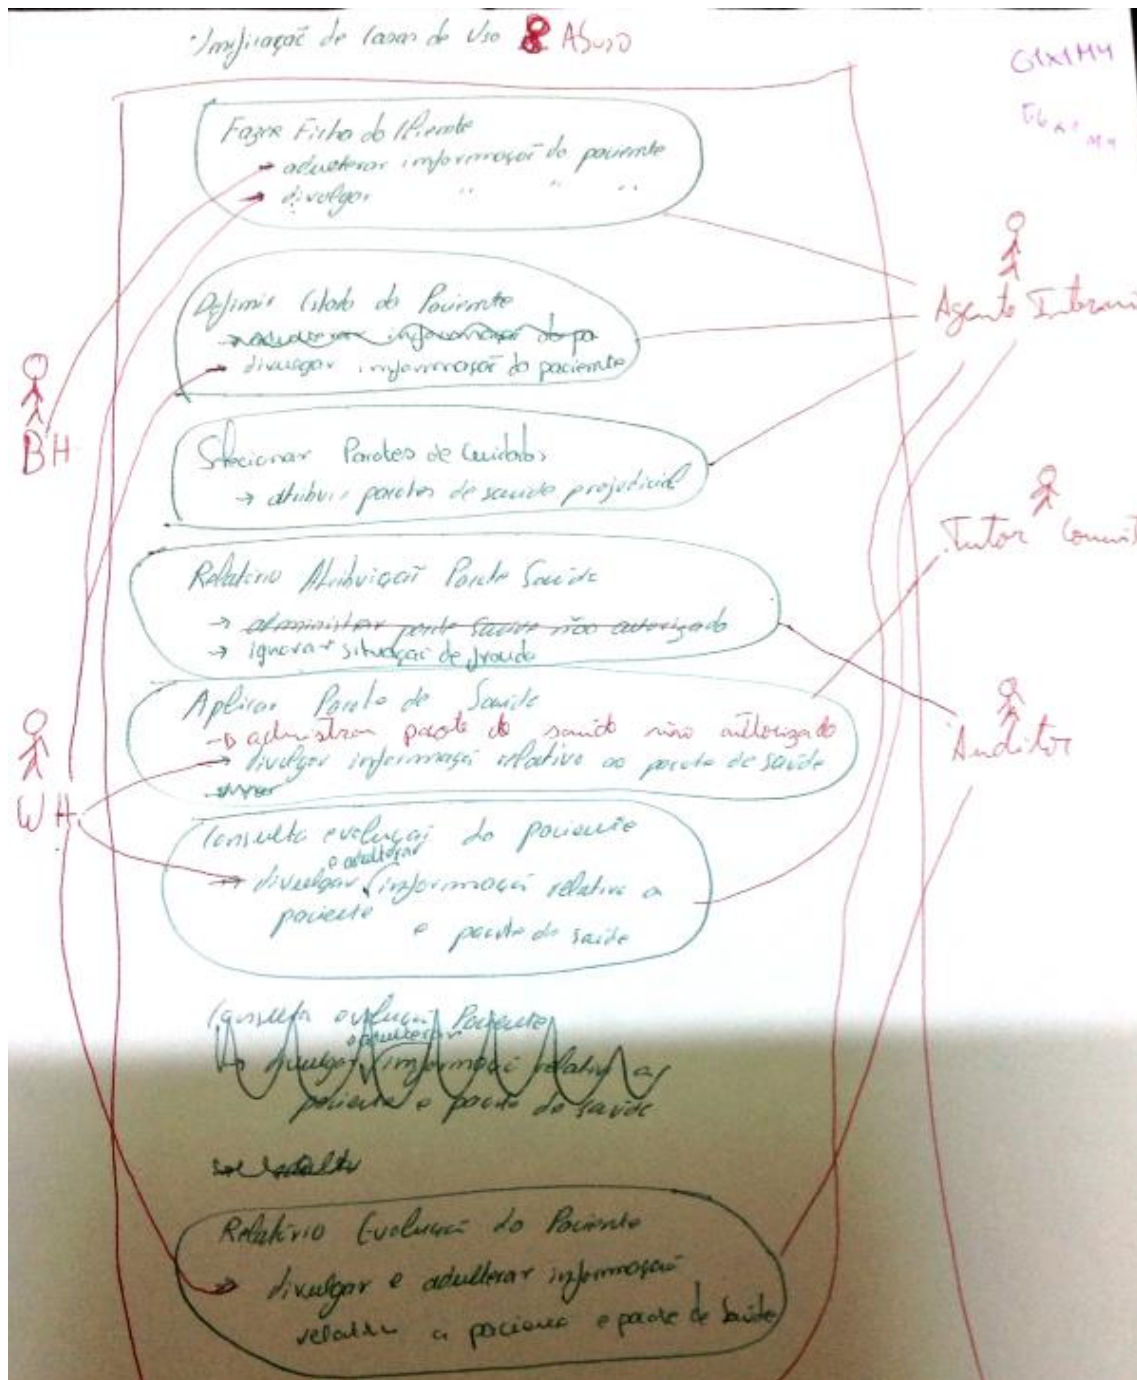 Unificação de Casos de Uso & Abuso
G1x1M4
Fazer Ficha do Paciente
→ adulterar informação do paciente
→ divulgar " " "
Definir Estado do Paciente
→ divulgar informação do paciente
Agente Interni
BH
Selecionar Pacotes de Cuidados
→ atribuir pacotes de saúde prejudicial
Tutor
Relatório Atribuição Pacote Saúde
→ administrar pacote saúde não autorizado
→ ignorar situação de fraude
Aplicar Pacote de Saúde
→ administrar pacote de saúde não autorizado
→ divulgar informação relativa ao pacote de saúde
Auditor
WH
Consulta evolução do paciente
e adulterar
→ divulgar informação relativa a
paciente e pacote de saúde
Consulta evolução Paciente
e adulterar
→ divulgar informação relativa ao
paciente e pacote de saúde
Relatório Evolução do Paciente
→ divulgar e adulterar informação
relativa a paciente e pacote de saúde